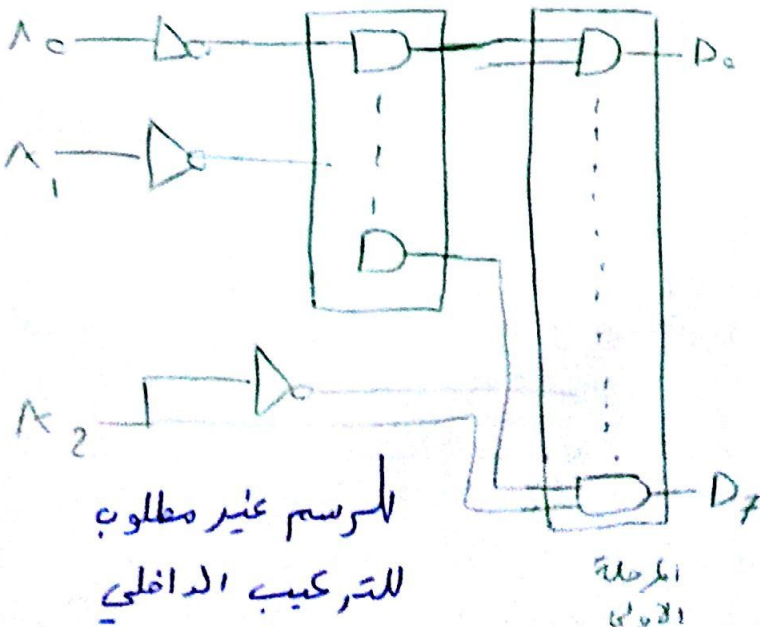 A₀
D₀
A₁
A₂
D₇
الرسم غير مطلوب
للتركيب الداخلي
المرحلة
الأولى